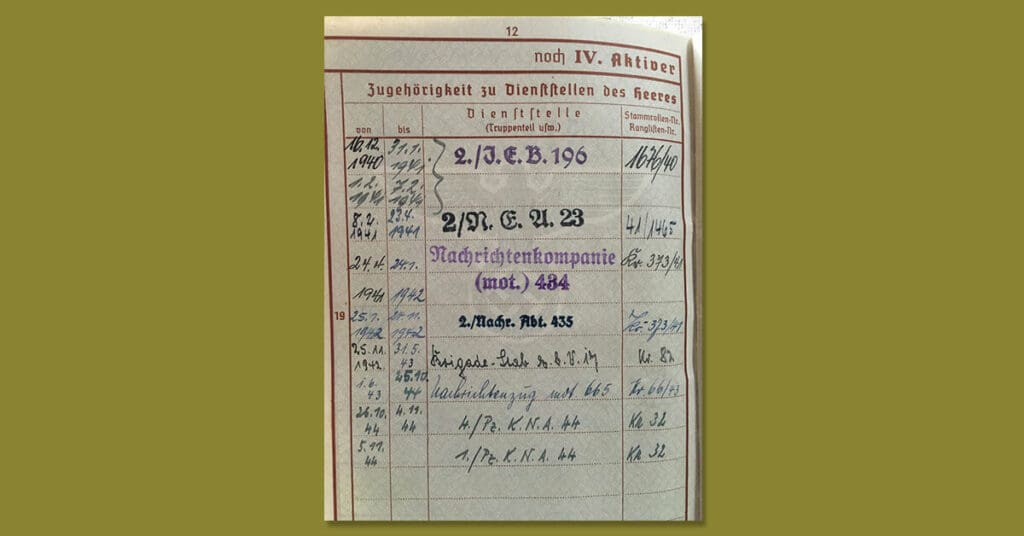 12
noch IV. Aktiver
Zugehörigkeit zu Dienststellen des Heeres
von bis Dienststelle (Truppenteil usw.) Stammrollen-Nr. Ranglisten-Nr.
16.12. 1940 31.1. 1941 2./J.E.B. 196 1676/40
1.2. 1941 7.2. 1941
8.2. 1941 23.4. 1941 2/N.E.A. 23 41/1465
24.4. 1941 24.1. 1942 Nachrichtenkompanie (mot.) 434 Kr. 373/41
19
25.1. 1942 24.11. 1942 2./Nachr. Abt. 435 Kr. 373/41
25.11. 1942 31.5. 43 Brigade-Stab z.b.V. 17 Kr.
1.6. 43 25.10. 44 Nachrichtenzug mot. 665 Kr 66/43
26.10. 44 4.11. 44 4./Pz. K.N.A. 44 Kr 32
5.11. 44 1./Pz. K.N.A. 44 Kr 32